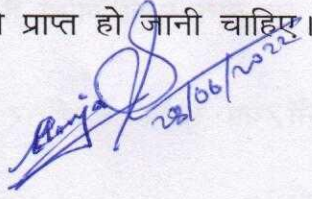 प्राप्त हो जानी चाहिए।
28/06/2022